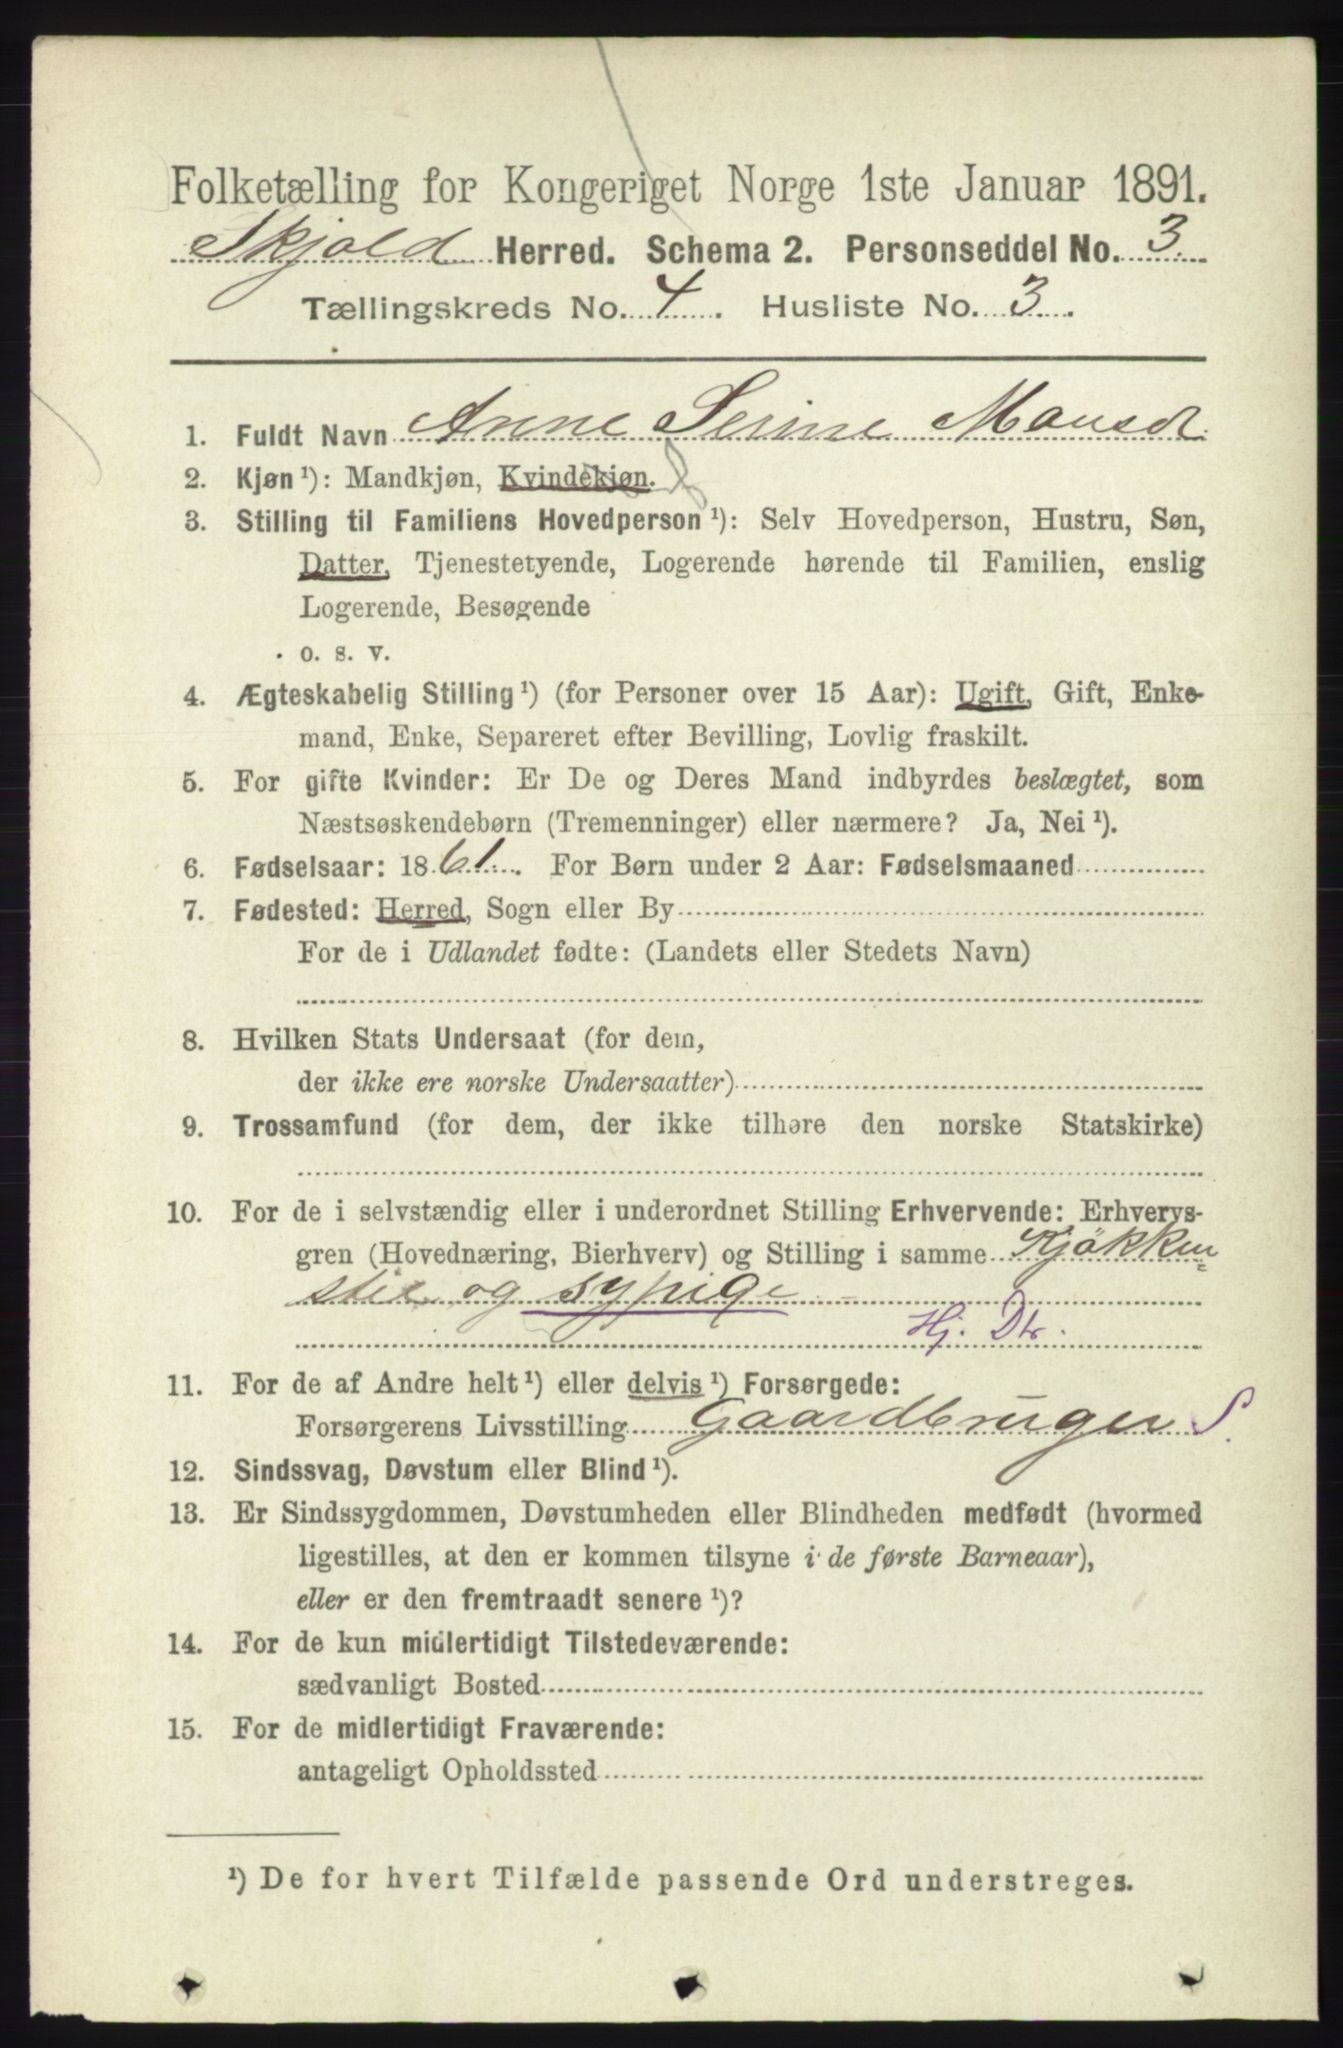 Folketælling for Kongeriget Norge 1ste Januar 1891.
Skjold Herred. Schema 2. Personseddel No. 3.
Tællingskreds No. 4. Husliste No. 3.
1. Fuldt Navn Anne Serine Mansdr
2. Kjøn ¹): Mandkjøn, Kvindekjøn.
3. Stilling til Familiens Hovedperson ¹): Selv Hovedperson, Hustru, Søn,
Datter, Tjenestetyende, Logerende hørende til Familien, enslig
Logerende, Besøgende
o. s. v.
4. Ægteskabelig Stilling ¹) (for Personer over 15 Aar): Ugift, Gift, Enke-
mand, Enke, Separeret efter Bevilling, Lovlig fraskilt.
5. For gifte Kvinder: Er De og Deres Mand indbyrdes beslægtet, som
Næstsøskendebørn (Tremenninger) eller nærmere? Ja, Nei ¹).
6. Fødselsaar: 1861. For Børn under 2 Aar: Fødselsmaaned
7. Fødested: Herred, Sogn eller By
For de i Udlandet fødte: (Landets eller Stedets Navn)
8. Hvilken Stats Undersaat (for dem,
der ikke ere norske Undersaatter)
9. Trossamfund (for dem, der ikke tilhøre den norske Statskirke)
10. For de i selvstændig eller i underordnet Stilling Erhvervende: Erhvervs-
gren (Hovednæring, Bierhverv) og Stilling i samme Kjøkken=
stel og sypige
Hj. Dtr.
11. For de af Andre helt ¹) eller delvis ¹) Forsørgede:
Forsørgerens Livsstilling Gaardbruger S.
12. Sindssvag, Døvstum eller Blind ¹).
13. Er Sindssygdommen, Døvstumheden eller Blindheden medfødt (hvormed
ligestilles, at den er kommen tilsyne i de første Barneaar),
eller er den fremtraadt senere ¹)?
14. For de kun midlertidigt Tilstedeværende:
sædvanligt Bosted
15. For de midlertidigt Fraværende:
antageligt Opholdssted
¹) De for hvert Tilfælde passende Ord understreges.